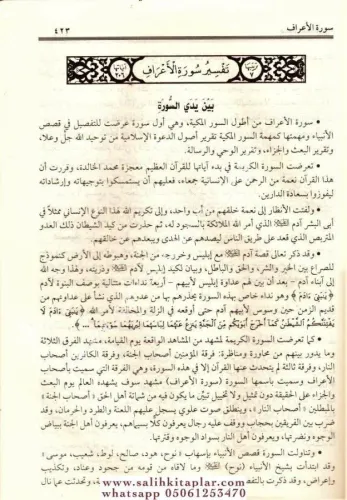 سورة الأعراف
٤٢٣
تَفْسِيرُ سُورَةِ الأَعْرَافِ
بَيْنَ يَدَيِ السُّورَة
• سورة الأعراف من أطول السور المكية، وهي أول سورة عرضت للتفصيل في قصص
الأنبياء ومهمتها كمهمة السور المكية تقرير أصول الدعوة الإسلامية من توحيد الله جل وعلا،
وتقرير البعث والجزاء، وتقرير الوحي والرسالة.
• تعرضت السورة الكريمة في بدء آياتها للقرآن العظيم معجزة محمد الخالدة، وقررت أن
هذا القرآن نعمة من الرحمن على الإنسانية جمعاء، فعليهم أن يستمسكوا بتوجيهاته وإرشاداته
ليفوزوا بسعادة الدارين.
• ولفتت الأنظار إلى نعمة خلقهم من أب واحد، وإلى تكريم الله لهذا النوع الإنساني ممثلاً في
أبي البشر آدم الذي أمر الله الملائكة بالسجود له، ثم حذرت من كيد الشيطان ذلك العدو
المتربص الذي قعد على طريق الناس ليصدهم عن الهدى ويبعدهم عن خالقهم.
• وقد ذكر تعالى قصة آدم مع إبليس وخروجه من الجنة، وهبوطه إلى الأرض كنموذج
للصراع بين الخير والشر، والحق والباطل، وبيان لكيد إبليس لآدم وذريته، ولهذا وجه الله
إلى أبناء آدم - بعد أن بين لهم عداوة إبليس لأبيهم - أربعة نداءات متتالية بوصف البنوة لآدم
﴿يَٰبَنِيٓ ءَادَمَ﴾ وهو نداء خاص بهذه السورة يحذرهم بها من عدوهم الذي نشأ على عداوتهم من
قديم الزمن حين وسوس لأبيهم آدم حتى أوقعه في الزلة والمخالفة لأمر الله ﴿يَٰبَنِيٓ ءَادَمَ لَا
يَفْتِنَنَّكُمُ الشَّيْطَٰنُ كَمَآ أَخْرَجَ أَبَوَيْكُم مِّنَ الْجَنَّةِ يَنزِعُ عَنْهُمَا لِبَاسَهُمَا لِيُرِيَهُمَا سَوْءَٰتِهِمَآ...﴾.
• كما تعرضت السورة الكريمة لمشهد من المشاهد الواقعة يوم القيامة، مشهد الفرق الثلاثة
وما يدور بينهم من محاورة ومناظرة: فرقة المؤمنين أصحاب الجنة، وفرقة الكافرين أصحاب
النار، وفرقة ثالثة لم يتحدث عنها القرآن إلا في هذه السورة، وهي الفرقة التي سميت بأصحاب
الأعراف وسميت باسمها السورة (سورة الأعراف) مشهد سوف يشهده العالم يوم البعث
والجزاء على الحقيقة دون تمثيل ولا تخييل تبيّن ما يكون فيه من شماتة أهل الحق «أصحاب الجنة»
بالمبطلين «أصحاب النار»، وينطلق صوت علوي يسجل عليهم اللعنة والطرد والحرمان، وقد
ضرب بين الفريقين بحجاب ووقف عليه رجال يعرفون كلاً بسيماهم، يعرفون أهل الجنة ببياض
الوجوه ونضرتها، ويعرفون أهل النار بسواد الوجوه وقترتها.
• وتناولت السورة قصص الأنبياء بإسهاب «نوح، هود، صالح، لوط، شعيب، موسى»
وقد ابتدأت بشيخ الأنبياء (نوح) وما لاقاه من قومه من جحود وعناد، وتكذيب
وإعراض، وقد ذكرت
www.salihkitaplar.com
whatsapp 05061253470